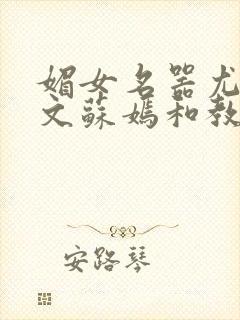 媚女名器尤
文蘇媽和教
安路琴